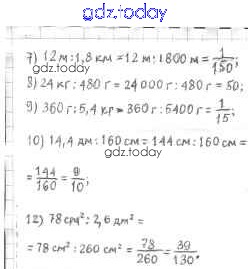 gdz.today
7) 12 м : 1,8 км = 12 м : 1800 м = 1/150;
gdz.today
8) 24 кг : 480 г = 24 000 г : 480 г = 50;
9) 360 г : 5,4 кг = 360 г : 5400 г = 1/15;
gdz.today
10) 14,4 дм : 160 см = 144 см : 160 см =
= 144/160 = 9/10;
gdz.today
12) 78 см² : 2,6 дм² =
= 78 см² : 260 см² = 78/260 = 39/130.